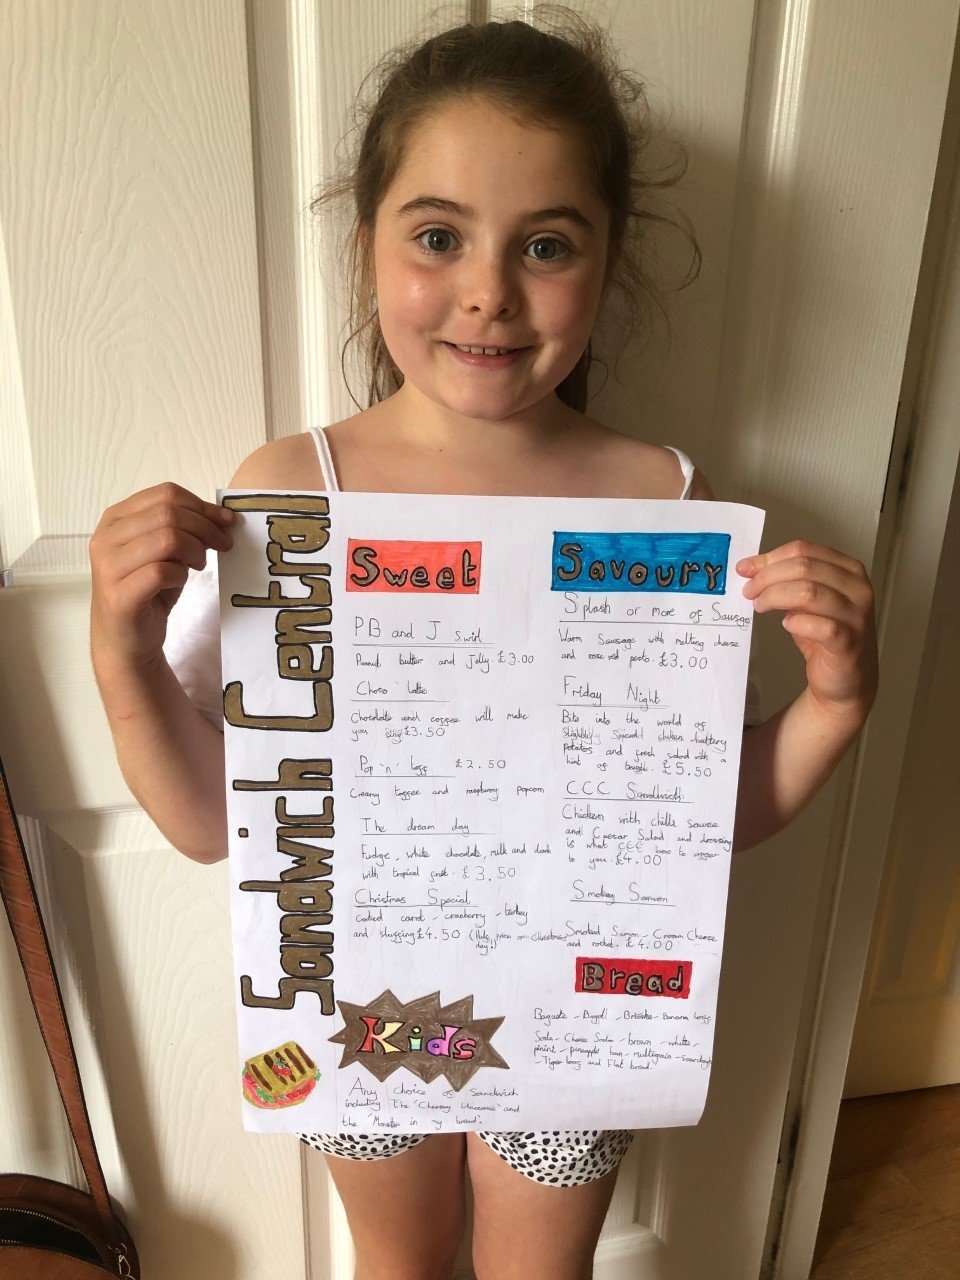 Sandwich Central
Sweet
PB and J swirl
Peanut butter and Jelly. £3.00
Choco 'latte
Chocolate and coffee will make
you sing £3.50
Pop 'n' toff £2.50
Creamy toffee and raspberry popcorn
The dream day
Fudge, white chocolate, milk and dark
with tropical fruit. £3.50
Christmas Special
carrot - cranberry - turkey
and stuffing £4.50 (Half price on Christmas
day!)
Kids
Any choice of Sandwich
including The 'Cheesy' and
the 'Monster in my bread'.
Savoury
Splash or more of Sausage
Warm Sausage with melting cheese
and red pesto. £3.00
Friday Night
Bite into the world of
spiced chicken - buttery
potatos and fresh salad with a
hint of £5.50
CCC Sandwich
Chicken with chilli sause
and Caesar Salad and dressing
is what CCC has to offer
to you. £4.00
Smokey Samon
Smoked Samon - Cream Cheese
and rocket. £4.00
Bread
Baguete - Bagel - Brioche - Banana
Soda - Cheese Soda - brown - white -
panini - pineapple bun - multigrain - sourdough
- Tiger and Flat bread.